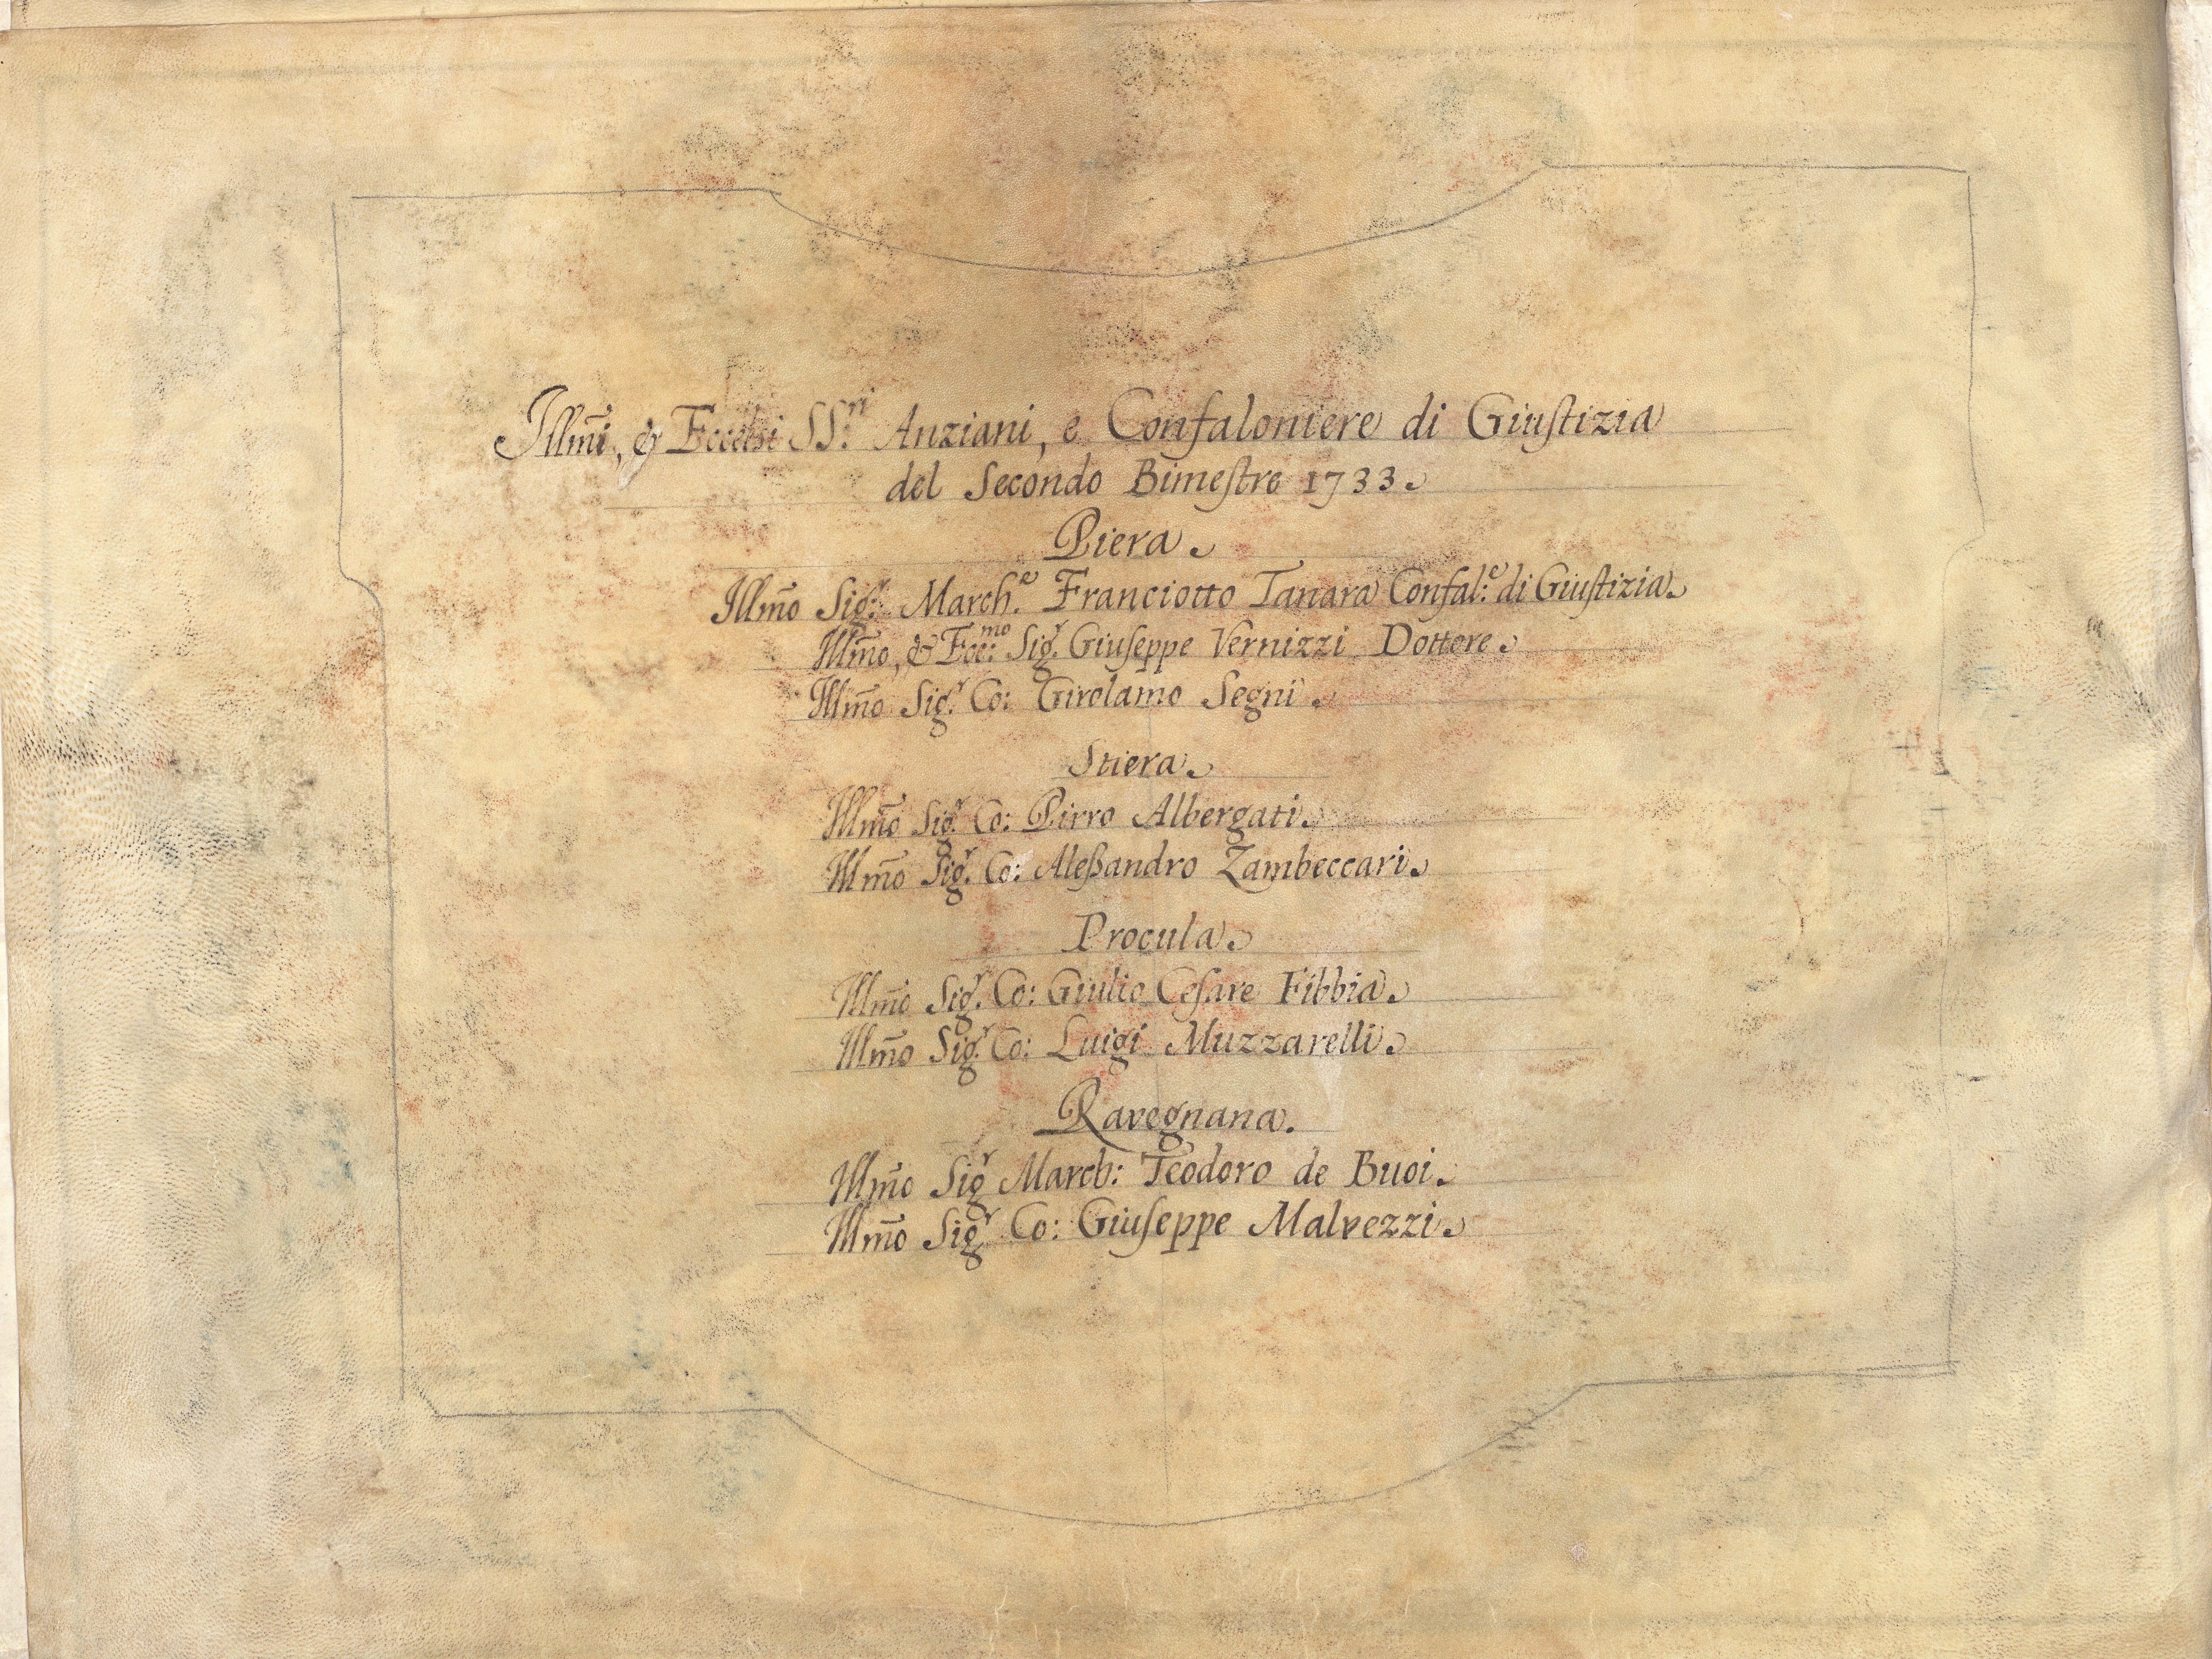 Illm̃i, & Eccelsi SS.ri Anziani, e Confaloniere di Giustizia
del Secondo Bimestre 1733.
Piera.
Illm̃o Sig.r March.e Franciotto Tanara Confal:e di Giustizia.
Illm̃o, & Ecc:mo Sig.r Giuseppe Vernizzi Dottore.
Illm̃o Sig.r Co: Girolamo Segni.
Stiera.
Illm̃o Sig.r Co: Pirro Albergati.
Illm̃o Sig.r Co: Aleßandro Zambeccari.
Procula.
Illm̃o Sig.r Co: Giulio Cesare Fibbia.
Illm̃o Sig.r Co: Luigi Muzzarelli.
Ravegnana.
Illm̃o Sig.r March: Teodoro de Buoi.
Illm̃o Sig.r Co: Giuseppe Malvezzi.